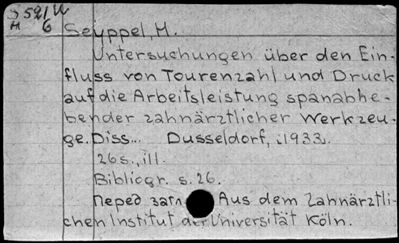 S 521/U
H 6
Seyppel, H.
Untersuchungen über den Ein-
fluss von Tourenzahl und Druck
auf die Arbeitsleistung spanabhe-
bender zahnärztlicher Werkzeu-
ge. Diss... Dusseldorf, 1933.
26 s., ill.
Bibliogr. s. 26.
Перед загл Aus dem Zahnärztli-
chen Institut der Universität Köln.